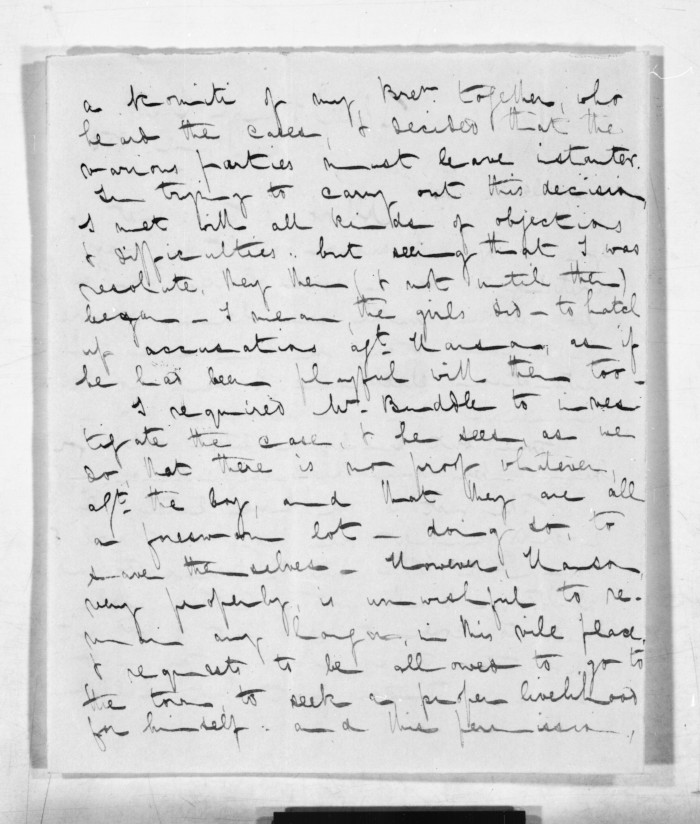 a komiti of my Bren. together, who
heard the cases, & decided that the
various parties must leave instanter.
In trying to carry out this decision,
I met with all kinds of objections
& difficulties: but seeing that I was
resolute, they then (& not until then)
began – I mean, the girls did – to hatch
up accusations agt. as if
he had been playful with them too –
I required Mr. Buddle to inves
tigate the case, & he sees, as we
do, that there is no proof whatever,
agt. the boy, and that they are all
a foresworn lot – doing so, to
save themselves – However,
very properly, is unwishful to re-
main any longer, in this vile place,
& requests to be allowed to go to
the town, to seek a proper livelihood
for himself: and this permission,